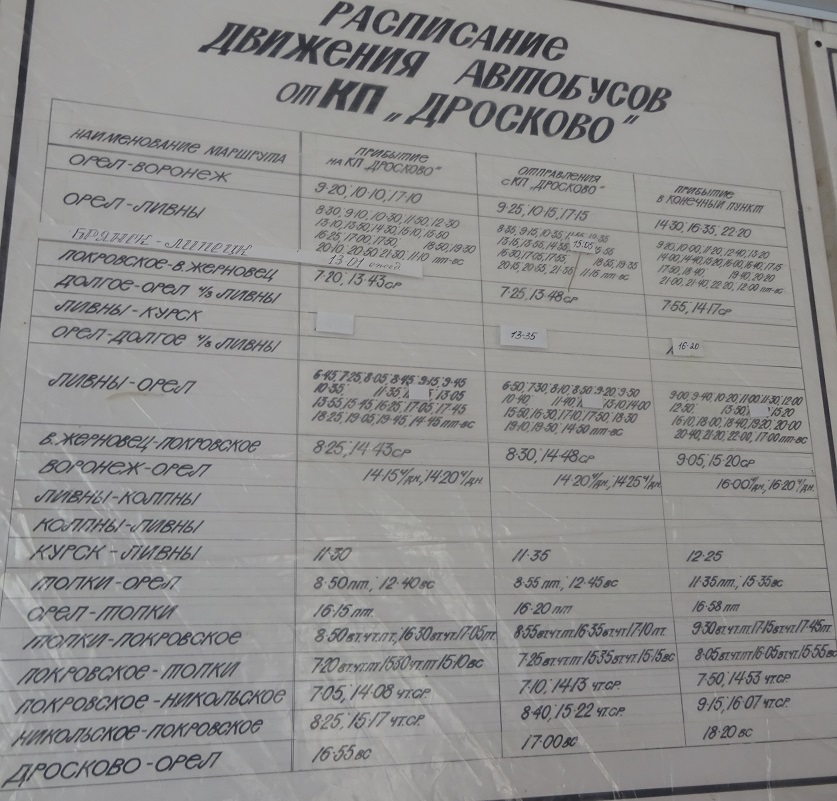 РАСПИСАНИЕ
ДВИЖЕНИЯ АВТОБУСОВ
от КП „ДРОСКОВО"
НАИМЕНОВАНИЕ МАРШРУТА ПРИБЫТИЕ НА КП ДРОСКОВО" ОТПРАВЛЕНИЯ С КП „ДРОСКОВО" ПРИБЫТИЕ В КОНЕЧНЫЙ ПУНКТ
ОРЕЛ-ВОРОНЕЖ 9-20, 10-10, 17-10 9-25, 10-15, 17-15 14-30, 16-35, 22-20
ОРЕЛ-ЛИВНЫ
8-30, 9-10, 10-30, 11-50, 12-30
13-10, 13-50, 14-30, 15-10, 15-50 13-15, 13-55, 14-35 15-05 14-00, 14-40, 15-20, 16-00, 16-40, 17-15
16-25, 17-00, 17-50, 18-50, 19-50 16-30, 17-05, 17-55, 18-55, 19-55 17-50, 18-40, 19-40, 20-40
20-10, 20-50, 21-30, 11-10 пт-вс 20-15, 20-55, 21-35, 11-15 пт-вс 21-00, 21-40, 22-20, 12-00 пт-вс
БРЯНСК-ЛИПЕЦК 13-01
ПОКРОВСКОЕ-В.ЖЕРНОВЕЦ 7-20, 13-43 СР 7-25, 13-48 СР 7-55, 14-17 СР
ДОЛГОЕ-ОРЕЛ Ч/З ЛИВНЫ
ЛИВНЫ-КУРСК 13-35 16-20
ОРЕЛ-ДОЛГОЕ Ч/З ЛИВНЫ
ЛИВНЫ-ОРЕЛ
6-45, 7-25, 8-05, 8-45, 9-15, 9-45 6-50, 7-30, 8-10, 8-50, 9-20, 9-50 9-00, 9-40, 10-20, 11-00, 11-30, 12-00
10-35 11-35, 13-05 10-40 11-40, 13-10, 14-00 12-50, 13-50, 15-20
13-55, 15-45, 16-25, 17-05, 17-45 15-50, 16-30, 17-10, 17-50, 18-30 16-10, 18-00, 18-40, 19-20, 20-00
18-25, 19-05, 19-45, 14-45 пт-вс 19-10, 19-50, 14-50 пт-вс 20-40, 21-20, 22-00, 17-00 пт-вс
В.ЖЕРНОВЕЦ-ПОКРОВСКОЕ 8-25, 14-43 СР 8-30, 14-48 СР 9-05, 15-20 СР
ВОРОНЕЖ-ОРЕЛ 14-15 Ч/ДН., 14-20 Ч/ДН. 14-20 Ч/ДН., 14-25 Ч/ДН. 16-00 Ч/ДН., 16-20 Ч/ДН.
ЛИВНЫ-КОЛПНЫ
КОЛПНЫ-ЛИВНЫ
КУРСК-ЛИВНЫ 11-30 11-35 12-25
ТОПКИ-ОРЕЛ 8-50 ПТ., 12-40 ВС 8-55 ПТ., 12-45 ВС 11-35 ПТ., 15-35 ВС
ОРЕЛ-ТОПКИ 16-15 ПТ 16-20 ПТ 16-58 ПТ
ТОПКИ-ПОКРОВСКОЕ 8-50 ВТ.ЧТ.ПТ., 16-30 ВТ.ЧТ. 17-05 ПТ. 8-55 ВТ.ЧТ.ПТ. 16-35 ВТ.ЧТ. 17-10 ПТ. 9-30 ВТ.ЧТ.ПТ. 17-15 ВТ.ЧТ. 17-45 ПТ.
ПОКРОВСКОЕ-ТОПКИ 7-20 ВТ.ЧТ.ПТ 15-30 ЧТ.ПТ 15-10 ВС 7-25 ВТ.ЧТ.ПТ 15-35 ВТ.ЧТ. 15-15 ВС 8-05 ВТ.ЧТ.ПТ 16-05 ВТ.ЧТ. 15-55 ВС
ПОКРОВСКОЕ-НИКОЛЬСКОЕ 7-05, 14-08 ЧТ.СР. 7-10, 14-13 ЧТ.СР. 7-50, 14-53 ЧТ.СР.
НИКОЛЬСКОЕ-ПОКРОВСКОЕ 8-25, 15-17 ЧТ.СР. 8-40, 15-22 ЧТ.СР. 9-15, 16-07 ЧТ.СР.
ДРОСКОВО-ОРЕЛ 16-55 ВС 17-00 ВС 18-20 ВС